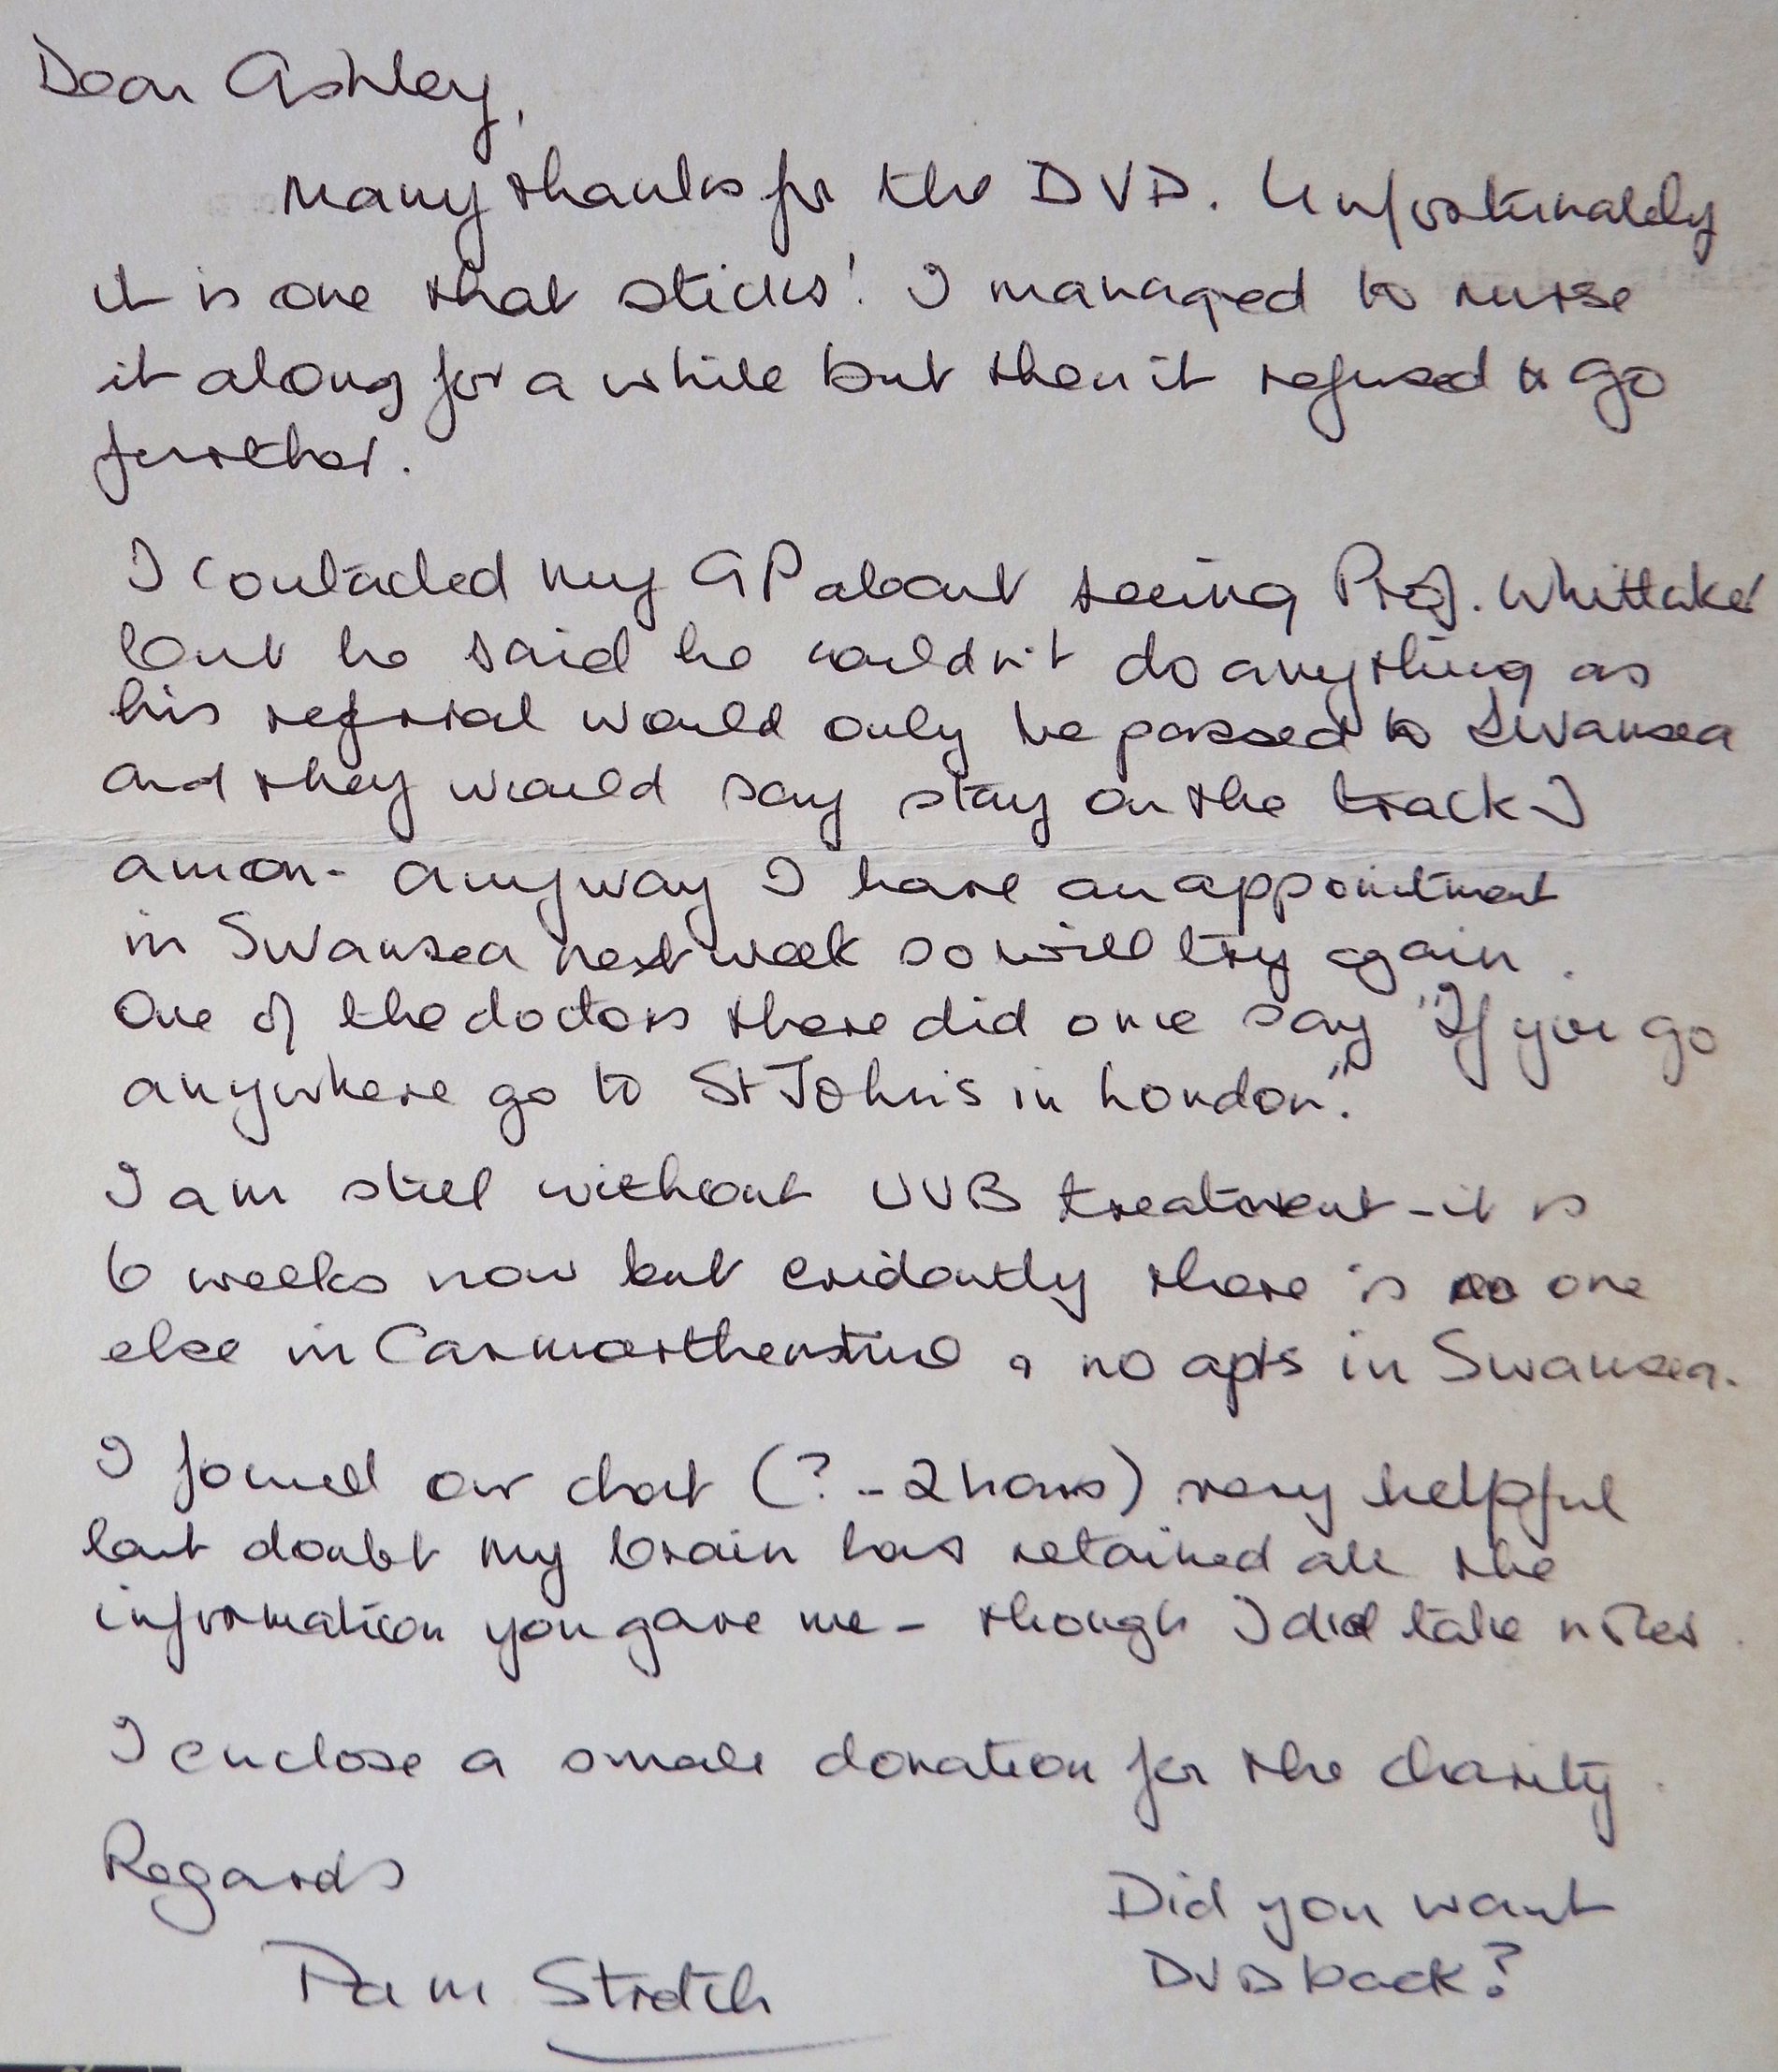 Dear Ashley,
Many thanks for the DVD. Unfortunately
it is one that sticks! I managed to nurse
it along for a while but then it refused to go
further.
I contacted my GP about seeing Prof. Whittaker
but he said he couldn't do anything as
his referral would only be passed to Swansea
and they would say stay on the track I
am on - anyway I have an appointment
in Swansea next week so will try again.
One of the doctors there did once say "If you go
anywhere go to St John's in London".
I am still without UVB treatment - it is
6 weeks now but evidently there is no one
else in Carmarthenshire & no apts in Swansea.
I found our chat (? - 2 hours) very helpful
but doubt my brain has retained all the
information you gave me - though I did take notes.
I enclose a small donation for the charity.
Regards
Pam
Did you want
DVD back?